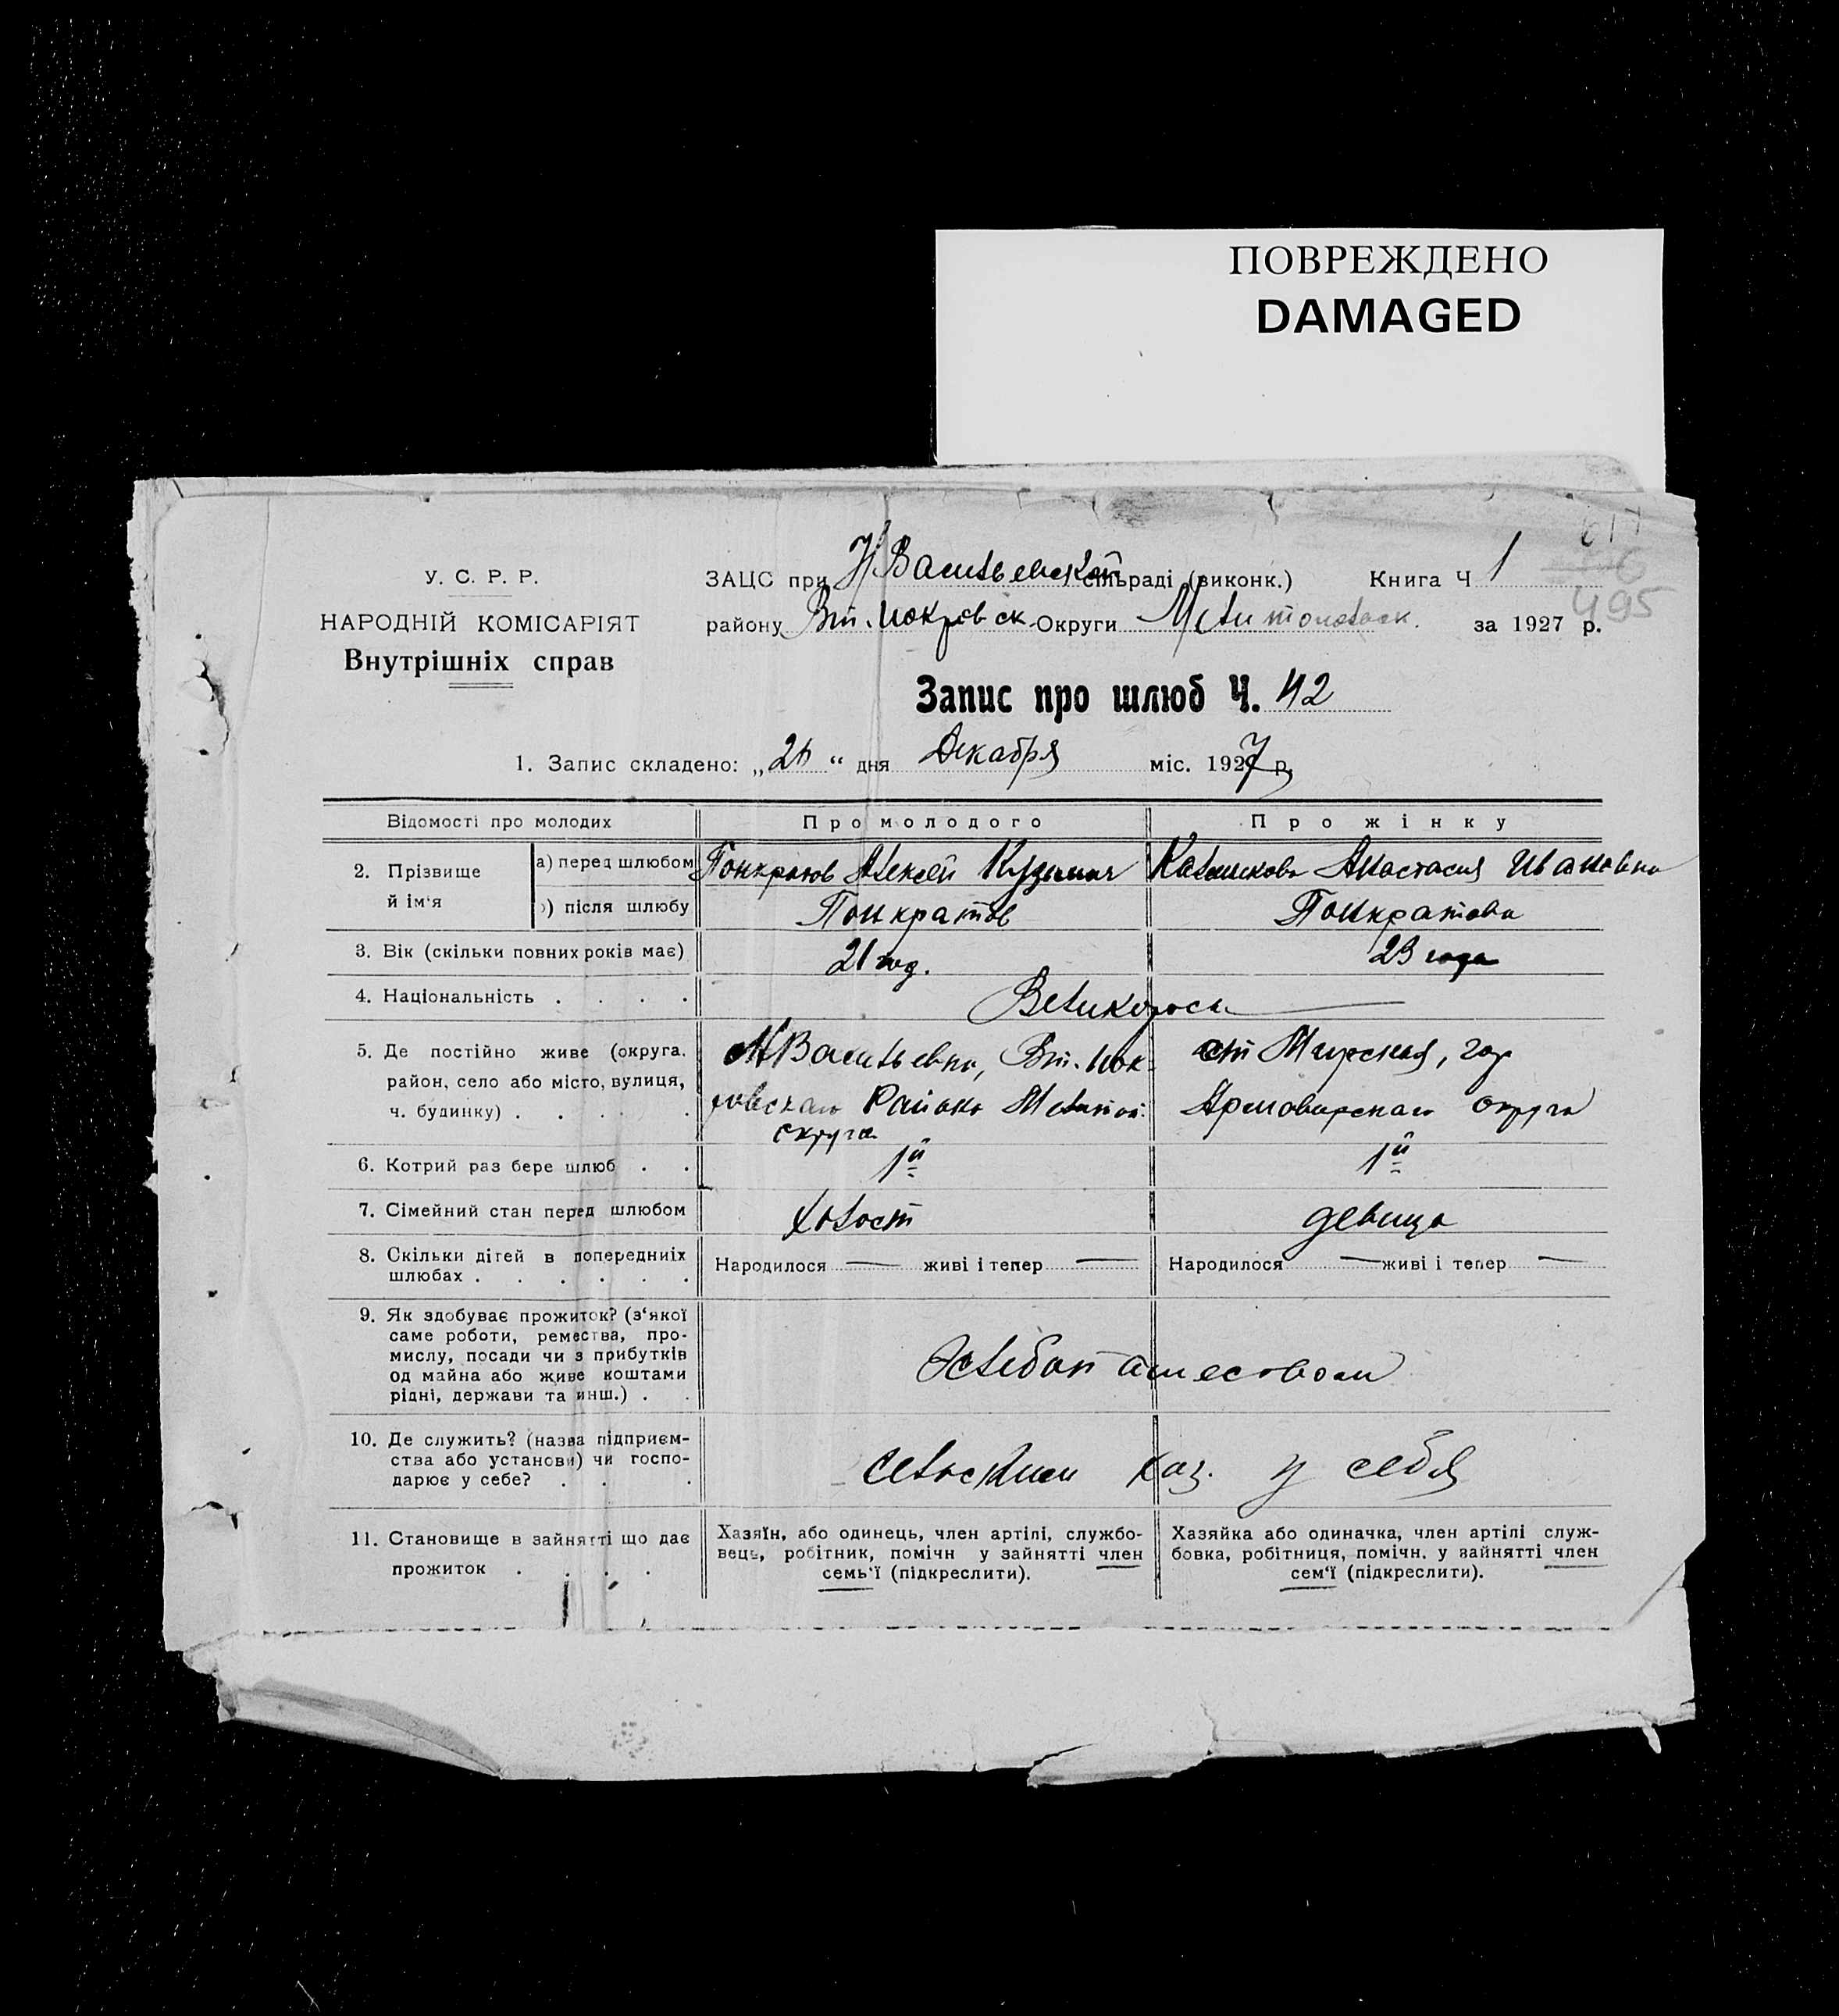 ПОВРЕЖДЕНО
DAMAGED
У. С. Р. Р.
НАРОДНІЙ КОМІСАРІЯТ
Внутрішніх справ
ЗАЦС при Н Васильевской сільраді (виконк.) Книга Ч 1
495
району Вт. Покровск. Округи Мелитопольск. за 1927 р.
Запис про шлюб Ч. 42
1. Запис складено: „ “ дня Декабря міс. 1927 р.
Відомості про молодих
Про молодого
Про жінку
2. Прізвище й ім‘я
а) перед шлюбом
Понкратов Алексей Кузьмич
Анастасия Ивановна
) після шлюбу
Понкратов
Понкратова
3. Вік (скільки повних років має)
21 год.
23 года
4. Національність . . . .
Великоросы
5. Де постійно живе (округа.
район, село або місто, вулиця,
ч. будинку) . . . .
Н Васильевка, Вт. Пок-
ровскаго Района Мелитоп.
округа
ст Мирская,
Армовирскаго округа
6. Котрий раз бере шлюб . .
1й
1й
7. Сімейний стан перед шлюбом
холост
девица
8. Скільки дітей в попередніх
шлюбах . . . . . .
Народилося — живі і тепер —
Народилося — живі і тепер —
9. Як здобуває прожиток? (з‘якої
саме роботи, ремества, про-
мислу, посади чи з прибутків
од майна або живе коштами
рідні, держави та инш.) . .
Хлебопашеством
10. Де служить? (назва підприєм-
ства або установи) чи госпо-
дарює у себе? . . .
сельским хоз. у себя
11. Становище в зайнятті що дає
прожиток . . . .
Хазяїн, або одинець, член артілі, службо-
вець, робітник, помічн у зайнятті член
семь‘ї (підкреслити).
Хазяйка або одиначка, член артілі служ-
бовка, робітниця, помічн. у зайнятті член
сем‘ї (підкреслити).